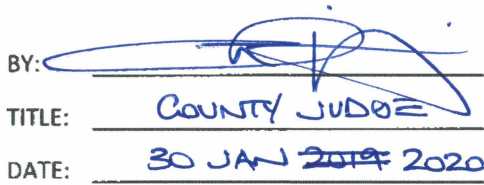 BY:
TITLE: COUNTY JUDGE
DATE: 30 JAN 2019 2020